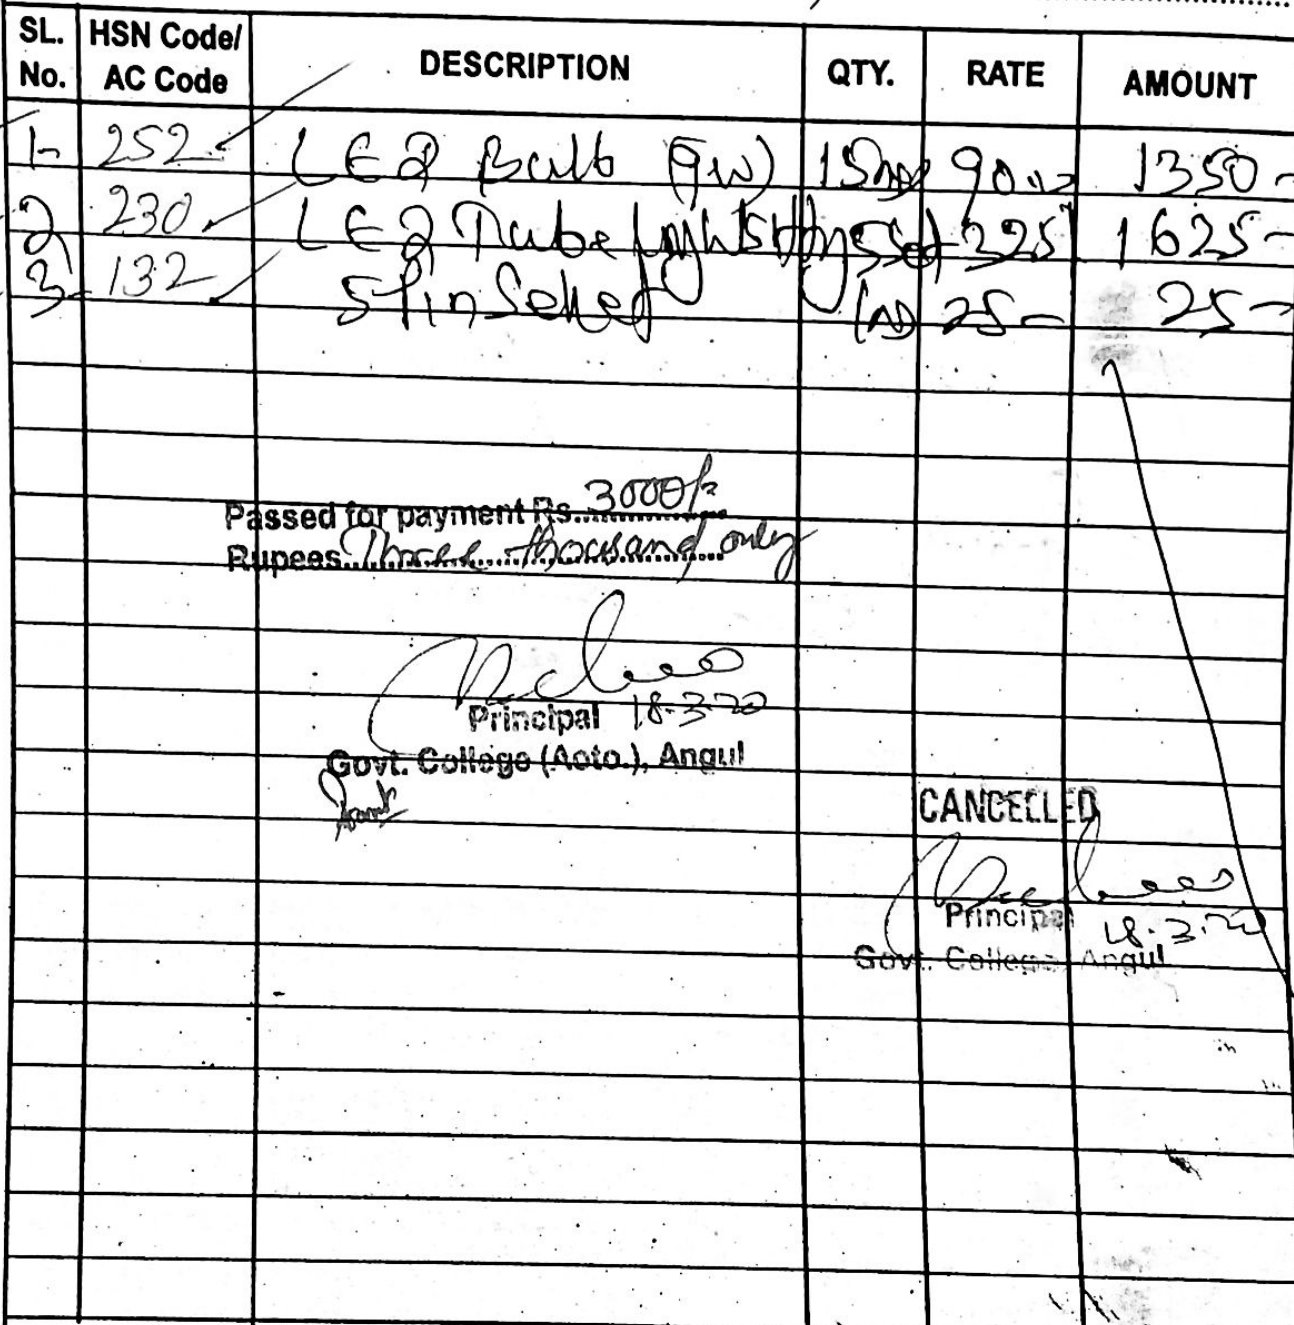 SL. No. HSN Code/ AC Code DESCRIPTION QTY. RATE AMOUNT
1- 252 LED Bulb (9W) 15 90 1350-
2 230 LED Tube 5 325 1625-
3- 132 25- 25-
Passed for payment Rs. 3000/-
Rupees Three thousand only
Principal 18-3-20
Govt. College (Aoto.), Angul
CANCELLED
Principal 18.3.20
Govt. College, Angul